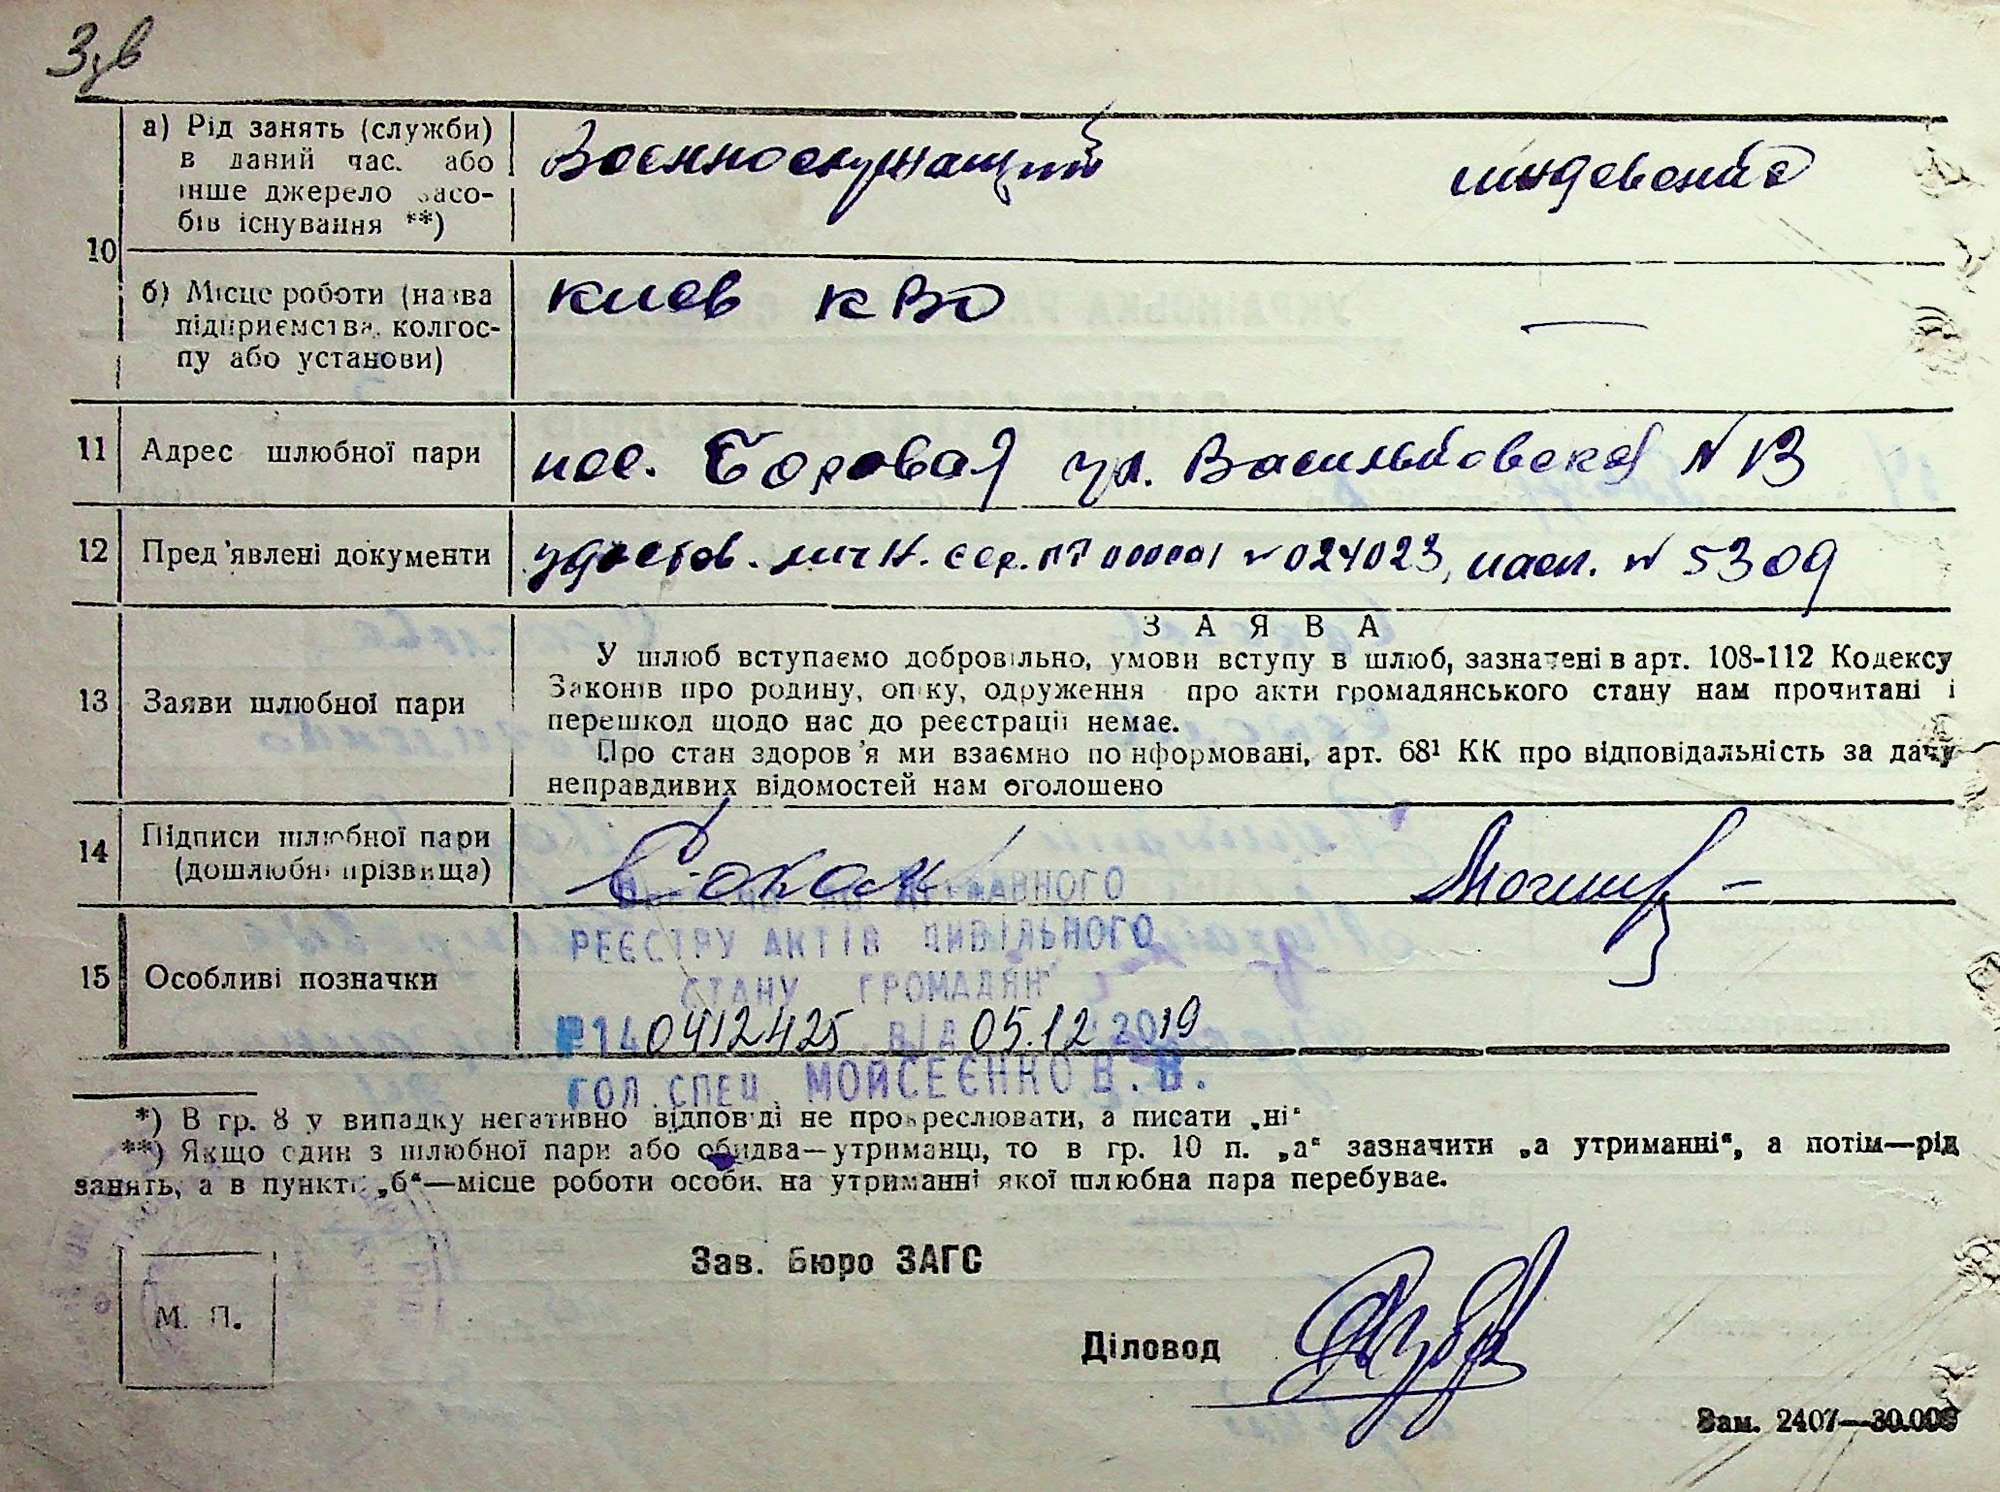 а) Рід занять (служби)
в даний час. або
інше джерело засо-
бів існування **)
Военнослужащий
иждевений
10
б) Місце роботи (назва
підприємства, колгос-
пу або установи)
Киев КВО
—
11 Адрес шлюбної пари
пос. Боровая ул. Васильковская N 13
12 Пред'явлені документи
удостов. личн. сер. ПТ 000001 N 024023, пасп. N 5309
13 Заяви шлюбної пари
ЗАЯВА
У шлюб вступаємо добровільно, умови вступу в шлюб, зазначені в арт. 108-112 Кодексу
Законів про родину, опіку, одруження про акти громадянського стану нам прочитані і
перешкод щодо нас до реєстрації немає.
Про стан здоров'я ми взаємно поінформовані, арт. 68¹ КК про відповідальність за дачу
неправдивих відомостей нам оголошено
14 Підписи шлюбної пари
(дошлюбні прізвища)
15 Особливі позначки
ДЕРЖАВНОГО
РЕЄСТРУ АКТІВ ЦИВІЛЬНОГО
СТАНУ ГРОМАДЯН"
№140412425 ВІД 05.12 2019
ГОЛ. СПЕЦ. МОЙСЕЄНКО В. В.
*) В гр. 8 у випадку негативно відповіді не прокреслювати, а писати „ні"
**) Якщо один з шлюбної пари або обидва—утриманці, то в гр. 10 п. „а" зазначити „а утриманні", а потім—рід
занять, а в пункті „б"—місце роботи особи. на утриманні якої шлюбна пара перебуває.
Зав. Бюро ЗАГС
М. П.
Діловод
Зам. 2407—30.000